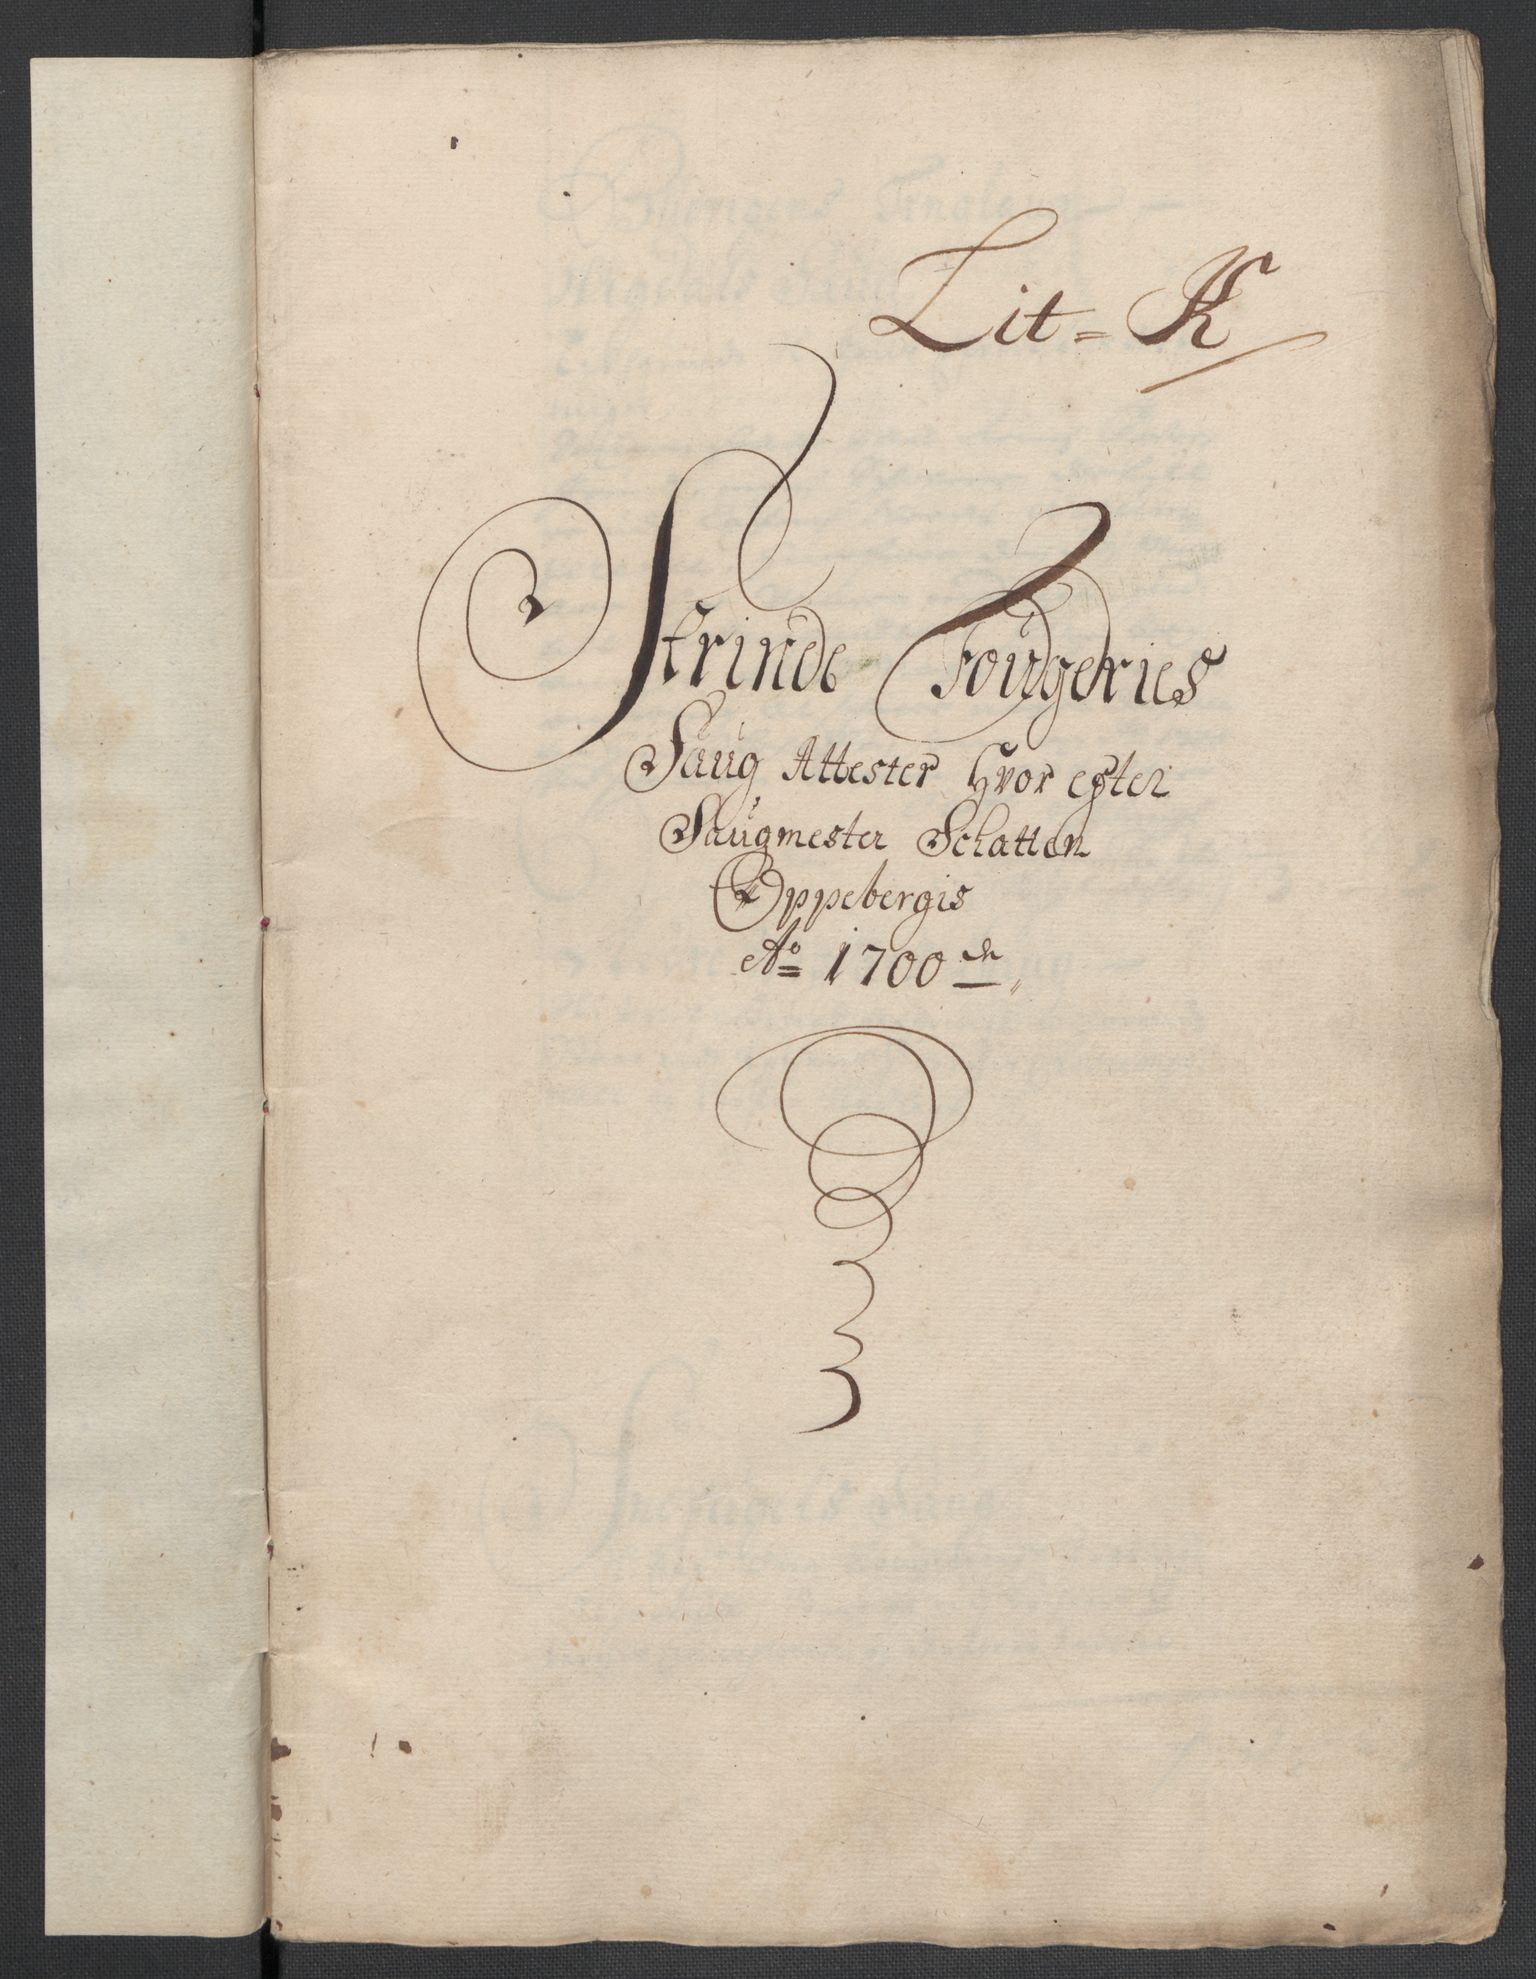 Lit = K
Strinde Fougeries
Saug Attester Hvor efter
Saugmester Schatten
Oppebergis
Ao 1700